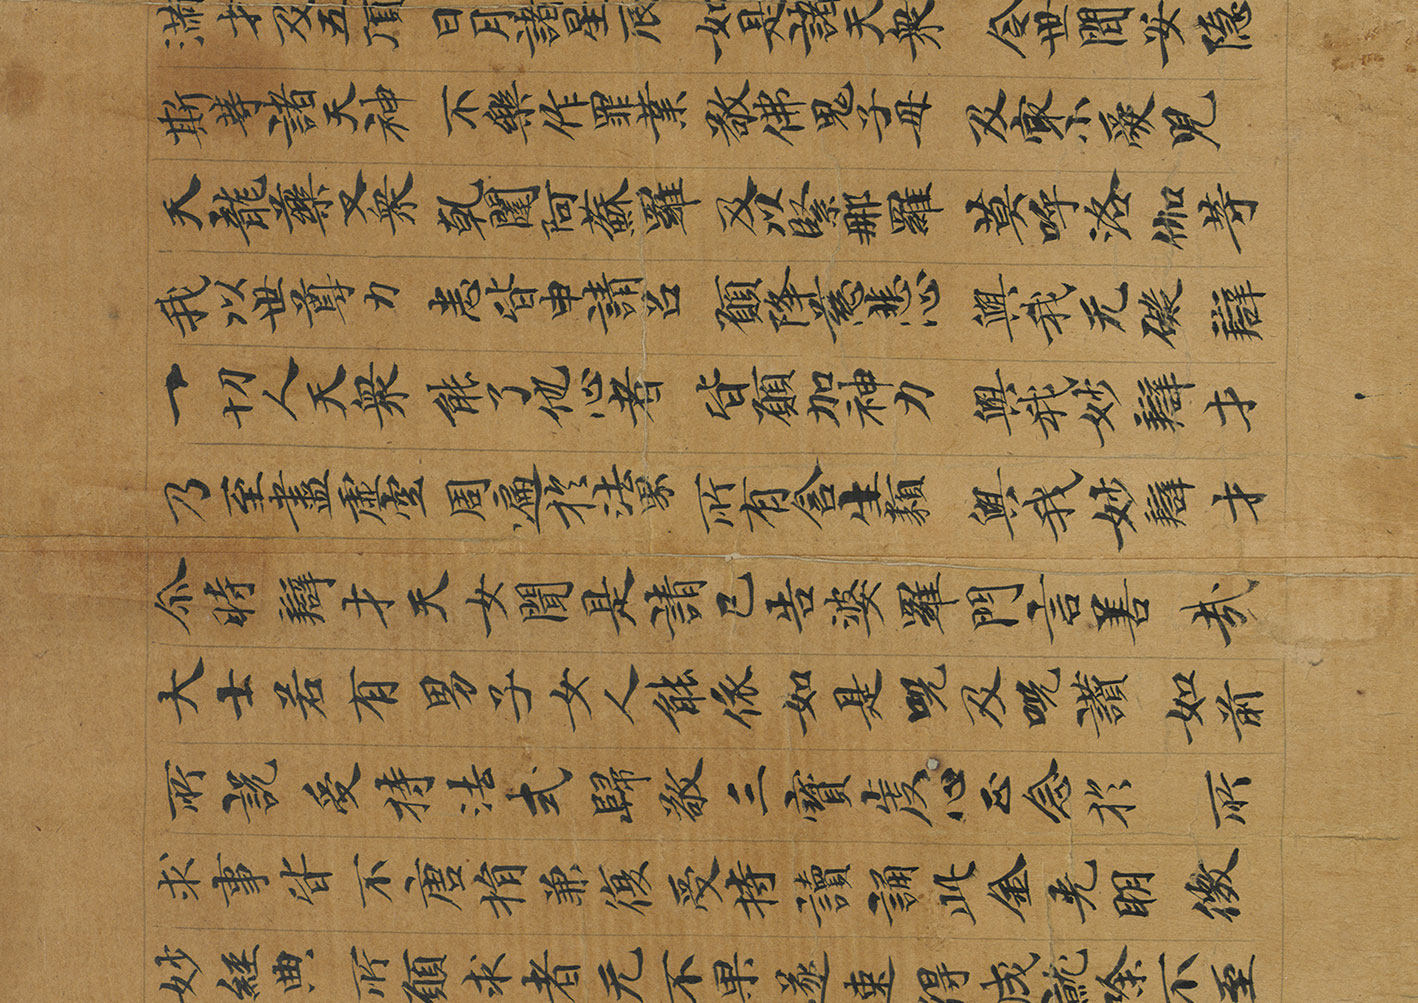 滿才及五頂 日月諸星辰 如是諸天衆 令世間安隱
斯等諸天神 不樂作罪業 敬佛鬼子母 及最小愛兒
天龍藥叉衆 乾闥阿蘇羅 及以緊那羅 莫呼洛伽等
我以世尊力 悉皆申請召 願降慈悲心 與我无礙辯
一切人天衆 能了他心者 皆願加神力 與我妙辯才
乃至盡虛空 周遍於法界 所有含生類 與我妙辯才
尒時辯才天女聞是請已告婆羅門言善哉
大士若有男子女人能依如是呪及呪讚如前
所說受持法式歸敬三寶虔心正念於所
求事皆不唐捐兼復受持讀誦此金光明微
妙經典所願求者无不果遂速得成就除不至